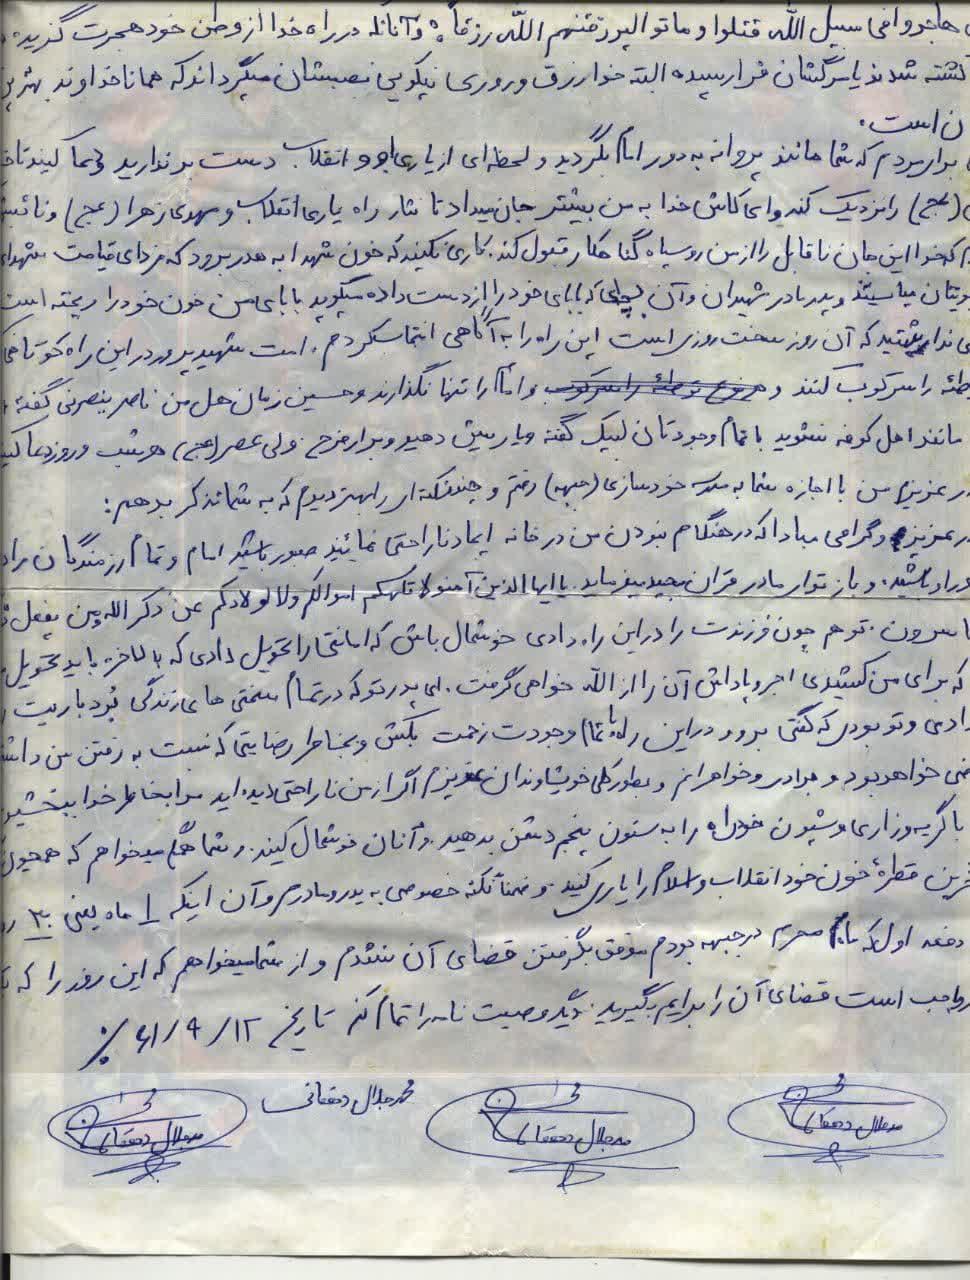 هاجروا فی سبیل الله قتلوا و ماتوا لیرزقنهم الله رزقا و آنانکه در راه خدا از وطن خود هجرت گزیده
کشته شدند یا مرگشان فرا رسیده البته خدا رزق و روزی نیکویی نصیبشان میگرداند که همانا خداوند بهترین
ن است.
برادر مردم که شما مانند پروانه به دور امام بگردید و لحظه‌ای از یاری او و انقلاب دست بر ندارید دعا کنید تا خدا
(عج) را نزدیک کند و ای کاش خدا به من بیشتر جان میداد تا نثار راه یاری انقلاب و مهدی زهرا (عج) و نائبش
که خدا این جان ناقابل را از من روسیاه گناهکار قبول کند. کاری نکنید که خون شهدا به هدر برود که فردای قیامت شهدا
و پدر مادر شهیدان و آن بچه‌ای که بابای خود را از دست داده میگوید بابای من خون خود را ریخته است
ندا که آن روز سخت روزی است این راه را به آگاهی انتخاب کردم. امت شهید پرور در این راه کوتاهی
را سرکوب کنند و امام را تنها نگذارند و حسین زمان هل من ناصر ینصرنی گفته
مانند اهل کوفه نشوید با تمام وجودتان لبیک گفته و یاریش دهید و برای فرج ولی عصر (عج) هر شب و روز دعا کنید
عزیزم من با اجازه شما به مکتب خودسازی (جبهه) رفتم و چند نکته‌ای را بهتر دیدم که به شما تذکر بدهم:
عزیز و گرامی مبادا که در هنگام نبودن من در خانه ایجاد ناراحتی نمائید صبور باشید امام و تمام رزمندگان را
باشید. و باز تو ای مادر قرآن مجید میفرماید. یا ایها الذین آمنو لا تلهکم اموالکم ولا اولادکم عن ذکر الله و من یفعل
سرون. تو هم چون فرزندت را در این راه دادی خوشحال باش که امانتی را تحویل دادی که بالاخره باید تحویل
که برای من کشیدی اجر و پاداش آن را از الله خواهی گرفت. ای پدر تو که در تمام سختی های زندگی
دادی و تو بودی که گفتی برو و در این راه با تمام وجودت زحمت بکش و بخاطر رضایتی که نسبت به رفتن من داشتی
ضی خواهد بود و برادر و خواهرانم و بطور کلی خویشاوندان عزیزم اگر از من ناراحتی دیده اید مرا بخاطر خدا ببخشید
با گریه و زاری و شیون خود راه را به ستون پنجم دشمن بدهید و آنان خوشحال کنید. و شما همگی میخواهم که همچون
خرین قطرهٔ خون خود انقلاب و اسلام را یاری کنید. و ضمناً نکته خصوصی به پدر و مادرم و آن اینکه ۱ ماه یعنی ۳۰
دفعه اول که ماه محرم در جبهه بودم موفق بگرفتن قضای آن نشدم و از شما میخواهم که این روز را که
واجب است قضای آن را برایم بگیرید. دیگر وصیت نامه را تمام کنم تاریخ ۶۱/۹/۱۲
محمد جلال دهقانی
محمد جلال دهقانی
محمد جلال دهقانی
محمد جلال دهقانی